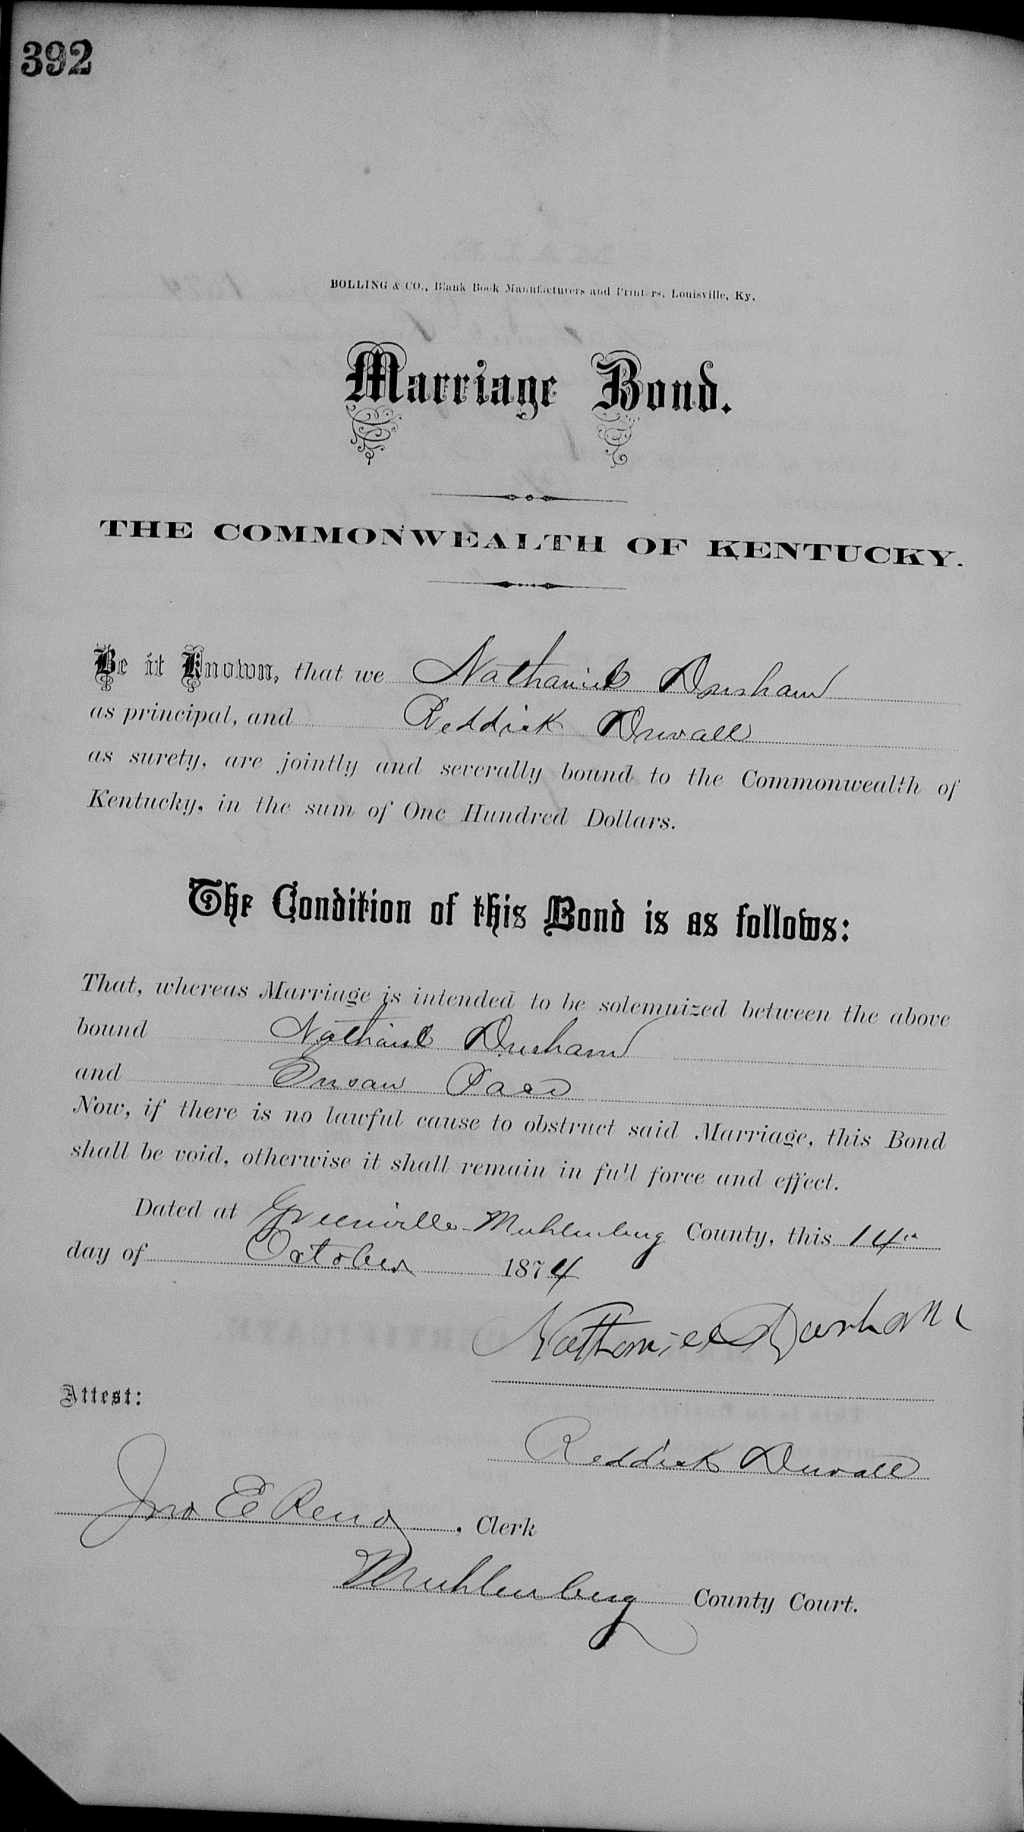 392
BOLLING & CO., Blank Book Manufacturers and Printers, Louisville, Ky.
Marriage Bond.
THE COMMONWEALTH OF KENTUCKY.
Be it Known, that we Nathaniel Dursham
as principal, and Reddick Duvall
as surety, are jointly and severally bound to the Commonwealth of
Kentucky, in the sum of One Hundred Dollars.
The Condition of this Bond is as follows:
That, whereas Marriage is intended to be solemnized between the above
bound Nathaniel Dursham
and Susan Pace
Now, if there is no lawful cause to obstruct said Marriage, this Bond
shall be void, otherwise it shall remain in full force and effect.
Dated at Greenville Muhlenberg County, this 14th
day of October 1874
Nathaniel Dursham
Attest:
Reddick Duvall
Jno E Reno, Clerk
Muhlenberg County Court.